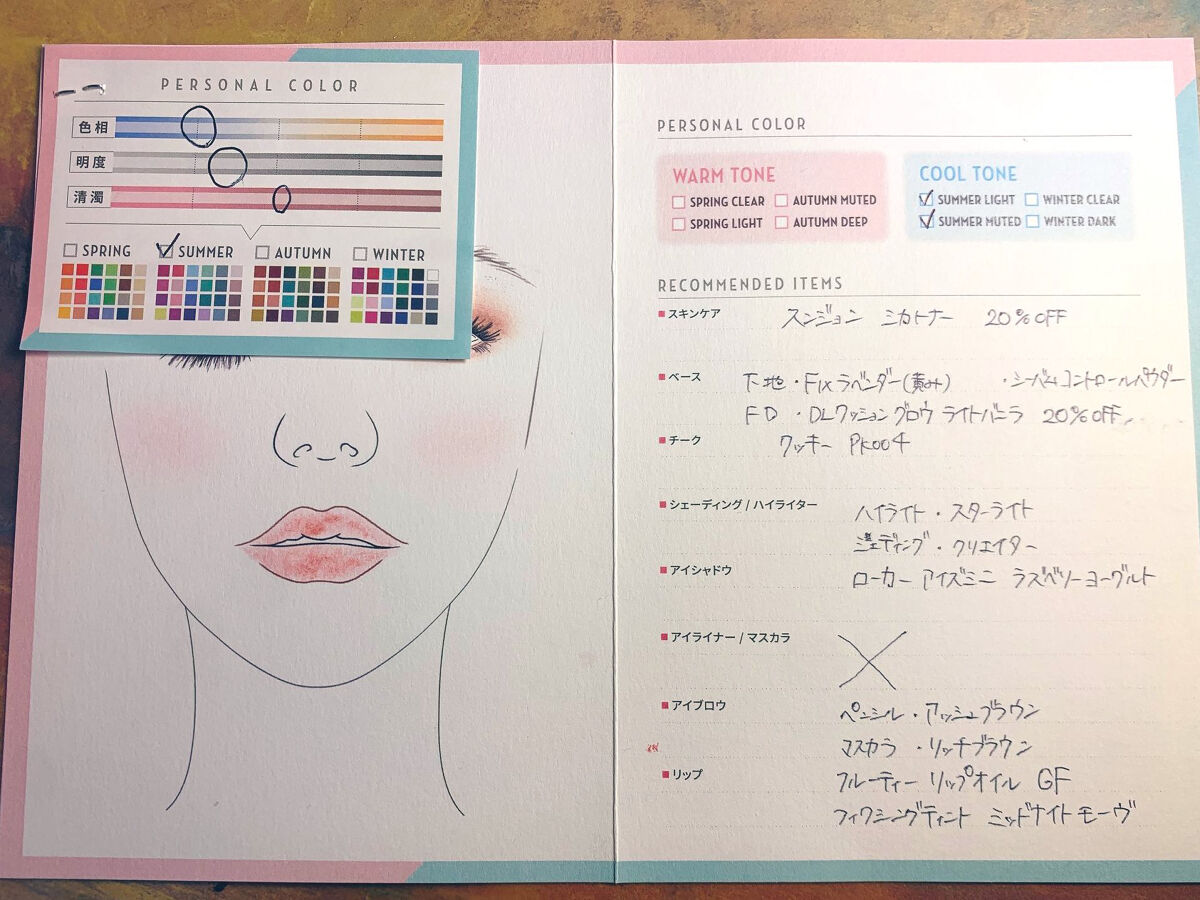 PERSONAL COLOR
色相
明度
清濁
SPRING SUMMER AUTUMN WINTER
PERSONAL COLOR
WARM TONE
SPRING CLEAR AUTUMN MUTED
SPRING LIGHT AUTUMN DEEP
COOL TONE
SUMMER LIGHT WINTER CLEAR
SUMMER MUTED WINTER DARK
RECOMMENDED ITEMS
スキンケア スンジョン ミカトナー 20%OFF
ベース 下地・Fixラベンダー(黄み) ・シーバムコントロールパウダー
FD ・DLクッショングロウ ライトバニラ 20%OFF
チーク クッキー PK004
シェーディング / ハイライター ハイライト・スターライト
シェーディング・クリエイター
アイシャドウ ローカー アイズミニ ラズベリーヨーグルト
アイライナー / マスカラ
アイブロウ ペンシル・アッシュブラウン
マスカラ ・リッチブラウン
リップ フルーティー リップオイル GF
フィクシングティント ミッドナイトモーヴ